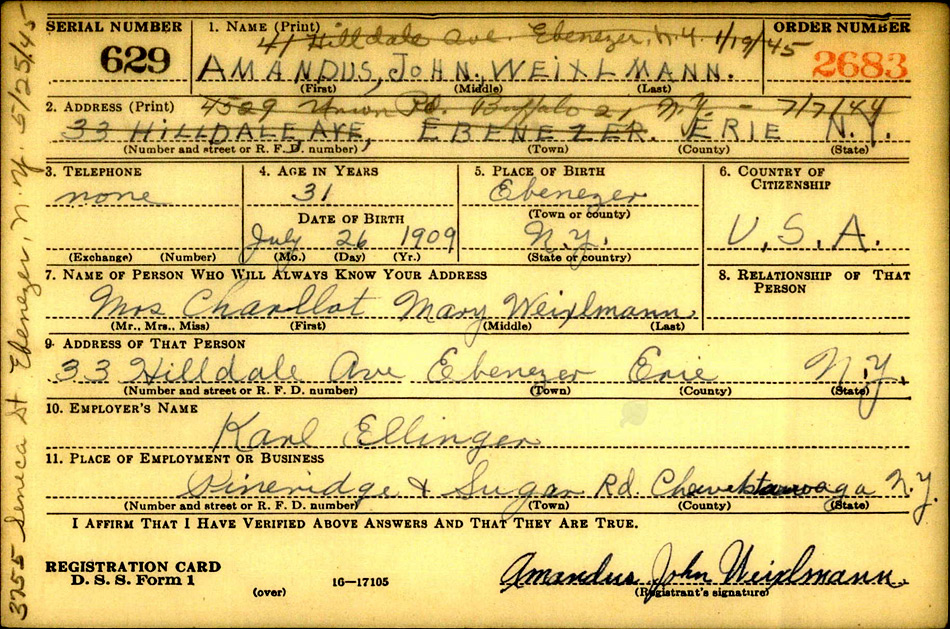 SERIAL NUMBER 1. NAME (Print) ORDER NUMBER
41 Hilldale Ave. Ebenezer, N.Y. 1/19/45
629 AMANDUS, JOHN, WEIXLMANN. 2683
(First) (Middle) (Last)
2. ADDRESS (Print) 4529 Union Rd. Buffalo 21 N.Y. - 7/7/44
33 HILLDALE, AVE, EBENEZER. ERIE N.Y.
(Number and street or R. F. D. number) (Town) (County) (State)
3. TELEPHONE 4. AGE IN YEARS 5. PLACE OF BIRTH 6. COUNTRY OF CITIZENSHIP
none 31 Ebenezer
DATE OF BIRTH (Town or county)
July 26 1909 N.Y. U.S.A.
(Exchange) (Number) (Mo.) (Day) (Yr.) (State or country)
7. NAME OF PERSON WHO WILL ALWAYS KNOW YOUR ADDRESS 8. RELATIONSHIP OF THAT PERSON
Mrs Charllot Mary Weixlmann
(Mr., Mrs., Miss) (First) (Middle) (Last)
9. ADDRESS OF THAT PERSON
33 Hilldale Ave Ebenezer Erie N.Y.
(Number and street or R. F. D. number) (Town) (County) (State)
10. EMPLOYER'S NAME
Karl Ellinger
11. PLACE OF EMPLOYMENT OR BUSINESS
Pineridge & Sugar Rd. Cheektawaga N.Y.
(Number and street or R. F. D. number) (Town) (County) (State)
I AFFIRM THAT I HAVE VERIFIED ABOVE ANSWERS AND THAT THEY ARE TRUE.
REGISTRATION CARD
D. S. S. Form 1 16—17105 Amandus John Weixlmann.
(over) (Registrant's signature)
3255 Seneca St Ebenezer, N.Y. 5/25/45